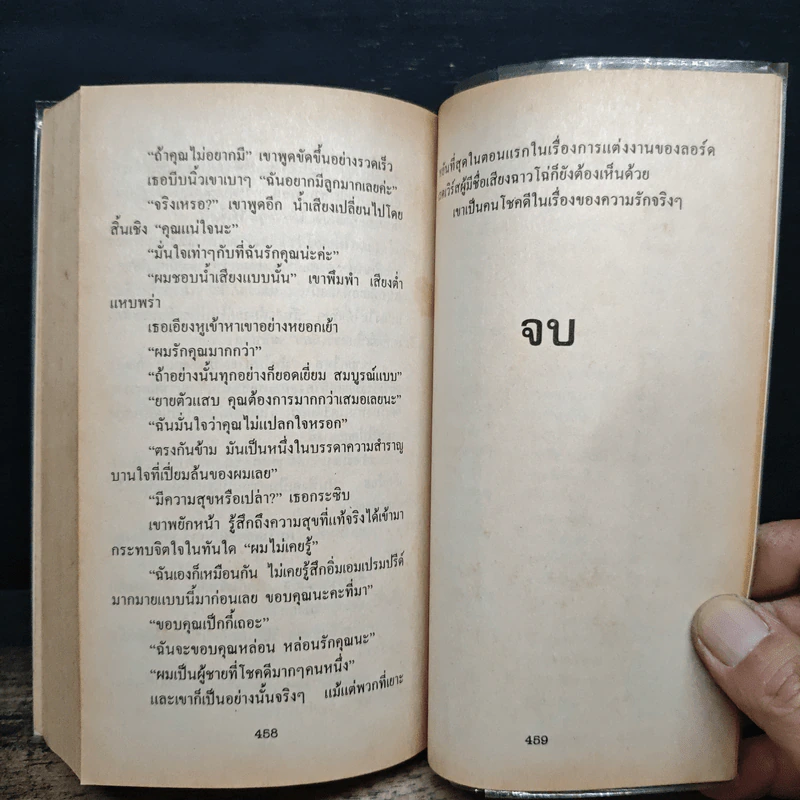 “ถ้าคุณไม่อยากมี” เขาพูดขัดขึ้นอย่างรวดเร็ว
เธอบีบนิ้วเขาเบาๆ “ฉันอยากมีลูกมากเลยค่ะ”
“จริงเหรอ?” เขาพูดอีก น้ำเสียงเปลี่ยนไปโดย
สิ้นเชิง “คุณแน่ใจนะ”
“มั่นใจเท่าๆกับที่ฉันรักคุณน่ะค่ะ”
“ผมชอบน้ำเสียงแบบนั้น” เขาพึมพำ เสียงต่ำ
แหบพร่า
เธอเอียงหูเข้าหาเขาอย่างหยอกเย้า
“ผมรักคุณมากกว่า”
“ถ้าอย่างนั้นทุกอย่างก็ยอดเยี่ยม สมบูรณ์แบบ”
“ยายตัวแสบ คุณต้องการมากกว่าเสมอเลยนะ”
“ฉันมั่นใจว่าคุณไม่แปลกใจหรอก”
“ตรงกันข้าม มันเป็นหนึ่งในบรรดาความสำราญ
บานใจที่เปี่ยมล้นของผมเลย”
“มีความสุขหรือเปล่า?” เธอกระซิบ
เขาพยักหน้า รู้สึกถึงความสุขที่แท้จริงได้เข้ามา
กระทบจิตใจในทันใด “ผมไม่เคยรู้”
“ฉันเองก็เหมือนกัน ไม่เคยรู้สึกอิ่มเอมเปรมปรีด์
มากมายแบบนี้มาก่อนเลย ขอบคุณนะคะที่มา”
“ขอบคุณเป็กกี้เถอะ”
“ฉันจะขอบคุณหล่อน หล่อนรักคุณนะ”
“ผมเป็นผู้ชายที่โชคดีมากๆคนหนึ่ง”
และเขาก็เป็นอย่างนั้นจริงๆ แม้แต่พวกที่เยาะ
458
ที่สุดในตอนแรกในเรื่องการแต่งงานของลอร์ด
ผู้มีชื่อเสียงฉาวโฉ่ก็ยังต้องเห็นด้วย
เขาเป็นคนโชคดีในเรื่องของความรักจริงๆ
จบ
459